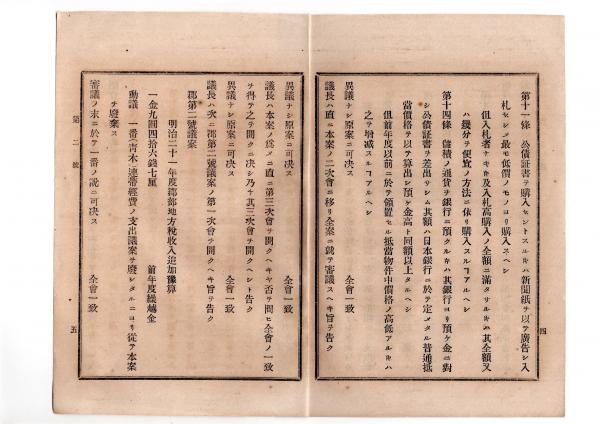 第十一條　公債証書ヲ購入セントスルキハ新聞紙ヲ以テ廣告シ入
札セシメ最モ低價ノモノヨリ購入スヘシ
但入札者ナキキ及入札高購入ノ全額ニ滿タサルキハ其全額又
ハ幾分ヲ便宜ノ方法ニ依リ購入スルヿアルヘシ
第十四條　儲積ノ通貨ヲ銀行ニ預クルキハ其銀行ヨリ預ケ金ニ對
シ公債証書ヲ差出サシム其額ハ日本銀行ニ於テ定メタル普通抵
當價格ヲ以テ算出シ預ケ金高ト同額以上タルヘシ
但前年度以前ニ於テ領置セル抵當物件中價格ノ高低アルキハ
之ヲ增减スルヿアルヘシ
異議ナシ原案ニ可决ス　全會一致
議長ハ直ニ本案ノ二次會ニ移リ全案ニ就テ審議スヘキ旨ヲ告ク
四
異議ナシ原案ニ可决ス　全會一致
議長ハ本案ノ爲メニ直ニ第三次會ヲ開クヘキヤ否ヲ問ヒ全會ノ一致
ヲ得テ之ヲ開クニ决シ乃ヤ其三次會ヲ開クヘシト告ク
異議ナシ原案ニ可决ス　全會一致
議長ハ次ニ郡第二號議案ノ第一次會ヲ開クヘキ旨ヲ告ク
郡第二號議案
明治二十一年度郡部地方稅收入追加豫算
一金九圓四拾六錢七厘　前年度繰越金
動議　一番(靑木)連帶經費ノ支出議案ヲ廢シタルニヨリ從テ本案
ヲ廢棄ス
審議ノ末ニ於テ一番ノ說ニ可决ス　全會一致
第二號
五